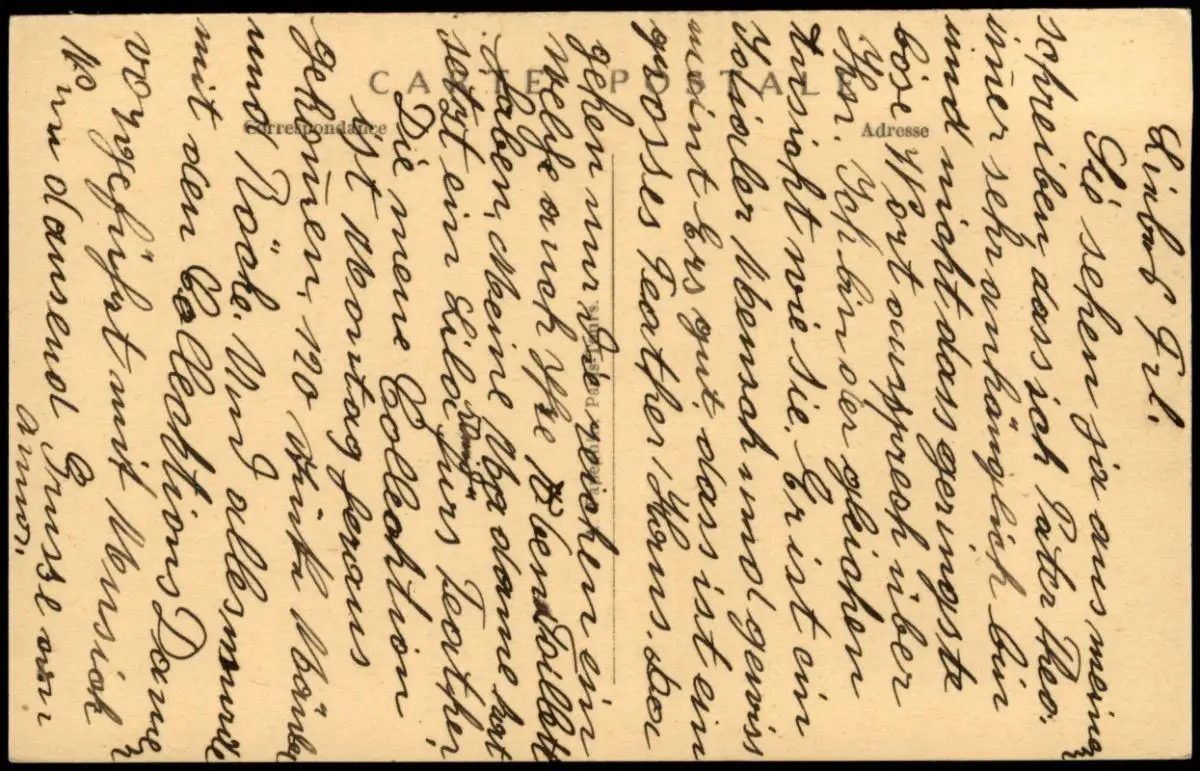 CARTE POSTALE
Correspondance
Adresse
Liebes Frl.
Sie sehen ja aus meinen
schreiben dass ich Pater Theo.
imer sehr anhänglich bin
und nicht dass geringste
böse Wort aussprech über
Ihn. Ich bin der gleichen
Ansicht wie sie. Er ist ein
Idialer Mensch und gewiss
meint Ers gut, dass ist ein
grosses Teather Haus. Da
gehen nur die reichen ein
welhe auch Ihre Abend Toilett
haben, Meine Madame sagt
setzt ein Eild fürs Teather,
Die neue Collecktion
ist Montag heraus
gekomen, 120 stük Mäntel
und Röcke. Und alles wurde
mit den Collecktions Damen
vorgefürt mit Mussick
Nun dausend Grüsse von
Anna.